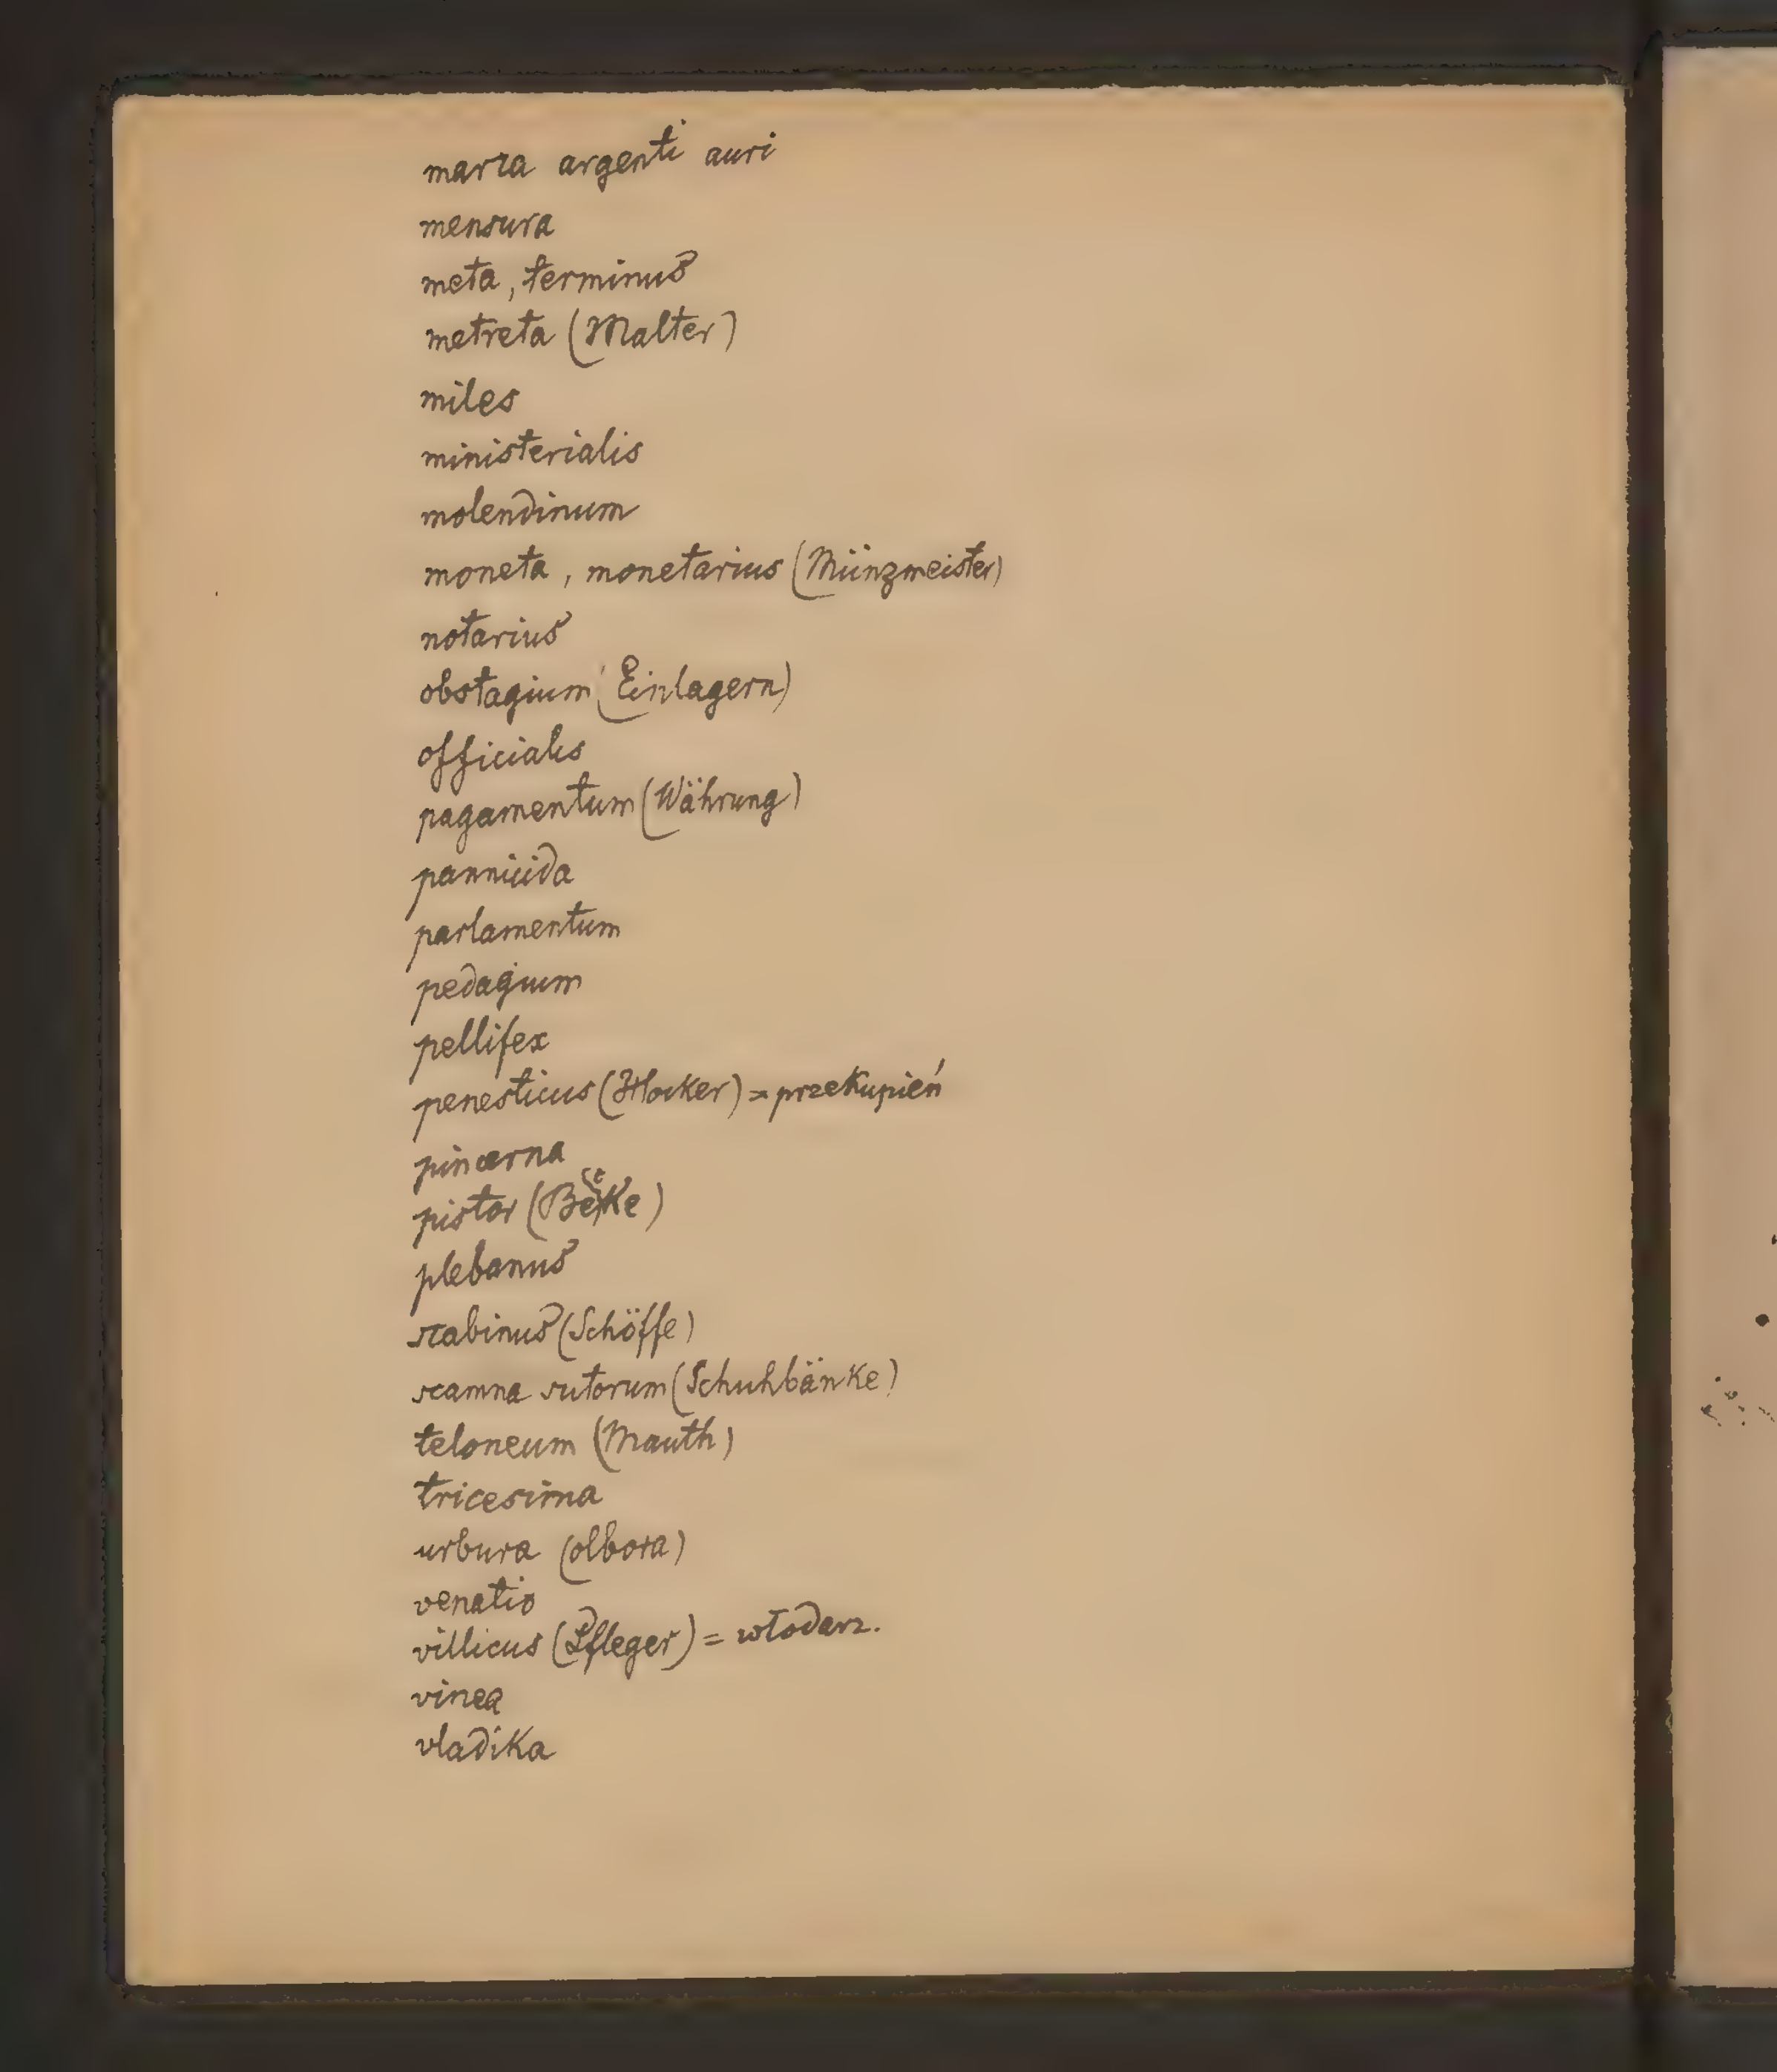 marca argenti auri
mensura
meta, terminus
metreta (Malter)
miles
ministerialis
molendinum
moneta, monetarius (Münzmeister)
notarius
obstagium (Einlagern)
officialis
pagamentum (Währung)
pannicida
parlamentum
pedagium
pellifex
penesticus (Hocker) = przekupień
pincerna
pistor (Becke)
plebanus
scabinus (Schöffe)
scamna sutorum (Schuhbänke)
teloneum (Mauth)
tricesima
urbura (olbora)
venatio
villicus (Pfleger) = włodarz.
vinea
vladika